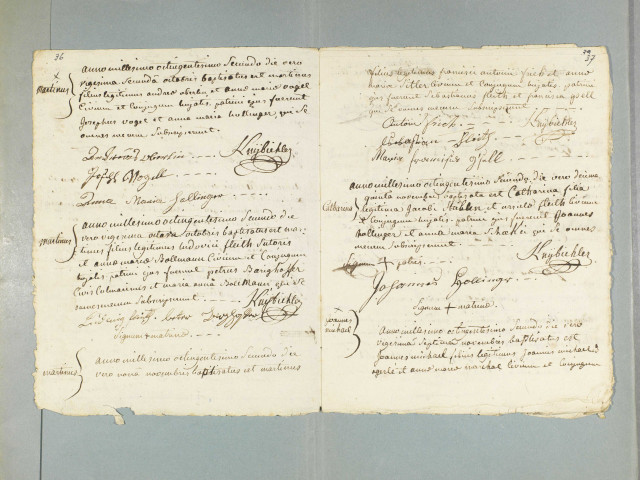 36
anno millesimo octingentesimo Secundo die vero
vigesima Secunda octobris baptisatus est martinus
martinus
filius legitimus andrea oberlin et anna maria vogel
Civium et Conjugum hujatis, patrini ejus fuerunt
Josephus vogel et anna maria hollinger, qui Se
omnes mecum Subscripserunt.
Knybiehler
Joseph Vogell
Anna Maria hollinger
anno millesimo octingentesimo Secundo die
vero vigesima octava octobris baptisatus est mar-
martinus
tinus filius legitimus ludovici fleith Sutoris
et anna maria Bollmann Civium et Conjugum
hujatis, patrini ejus fuerunt petrus
Civis et maria anna Bollmann qui se
mecum Subscripserunt.
Knybiehler
Signum + matrinae
anno millesimo octingentesimo Secundo die
vero nona novembris baptisatus est martinus
martinus
37
filius legitimus francisci antonii frick et anna
maria civium et Conjugum hujatis, patrini
ejus fuerunt Sebastianus fleith et francisca gsell
qui Se omnes mecum Subscripserunt.
Antoni frick
Knybiehler
Sebastian fleith
Maria francisca gsell
anno millesimo octingentesimo Secundo, die vero decima
quinta novembris baptisata est Catharina filia
Catharina
legitima Jacobi et ursula fleith Civium
et Conjugum hujatis, patrini ejus fuerunt Joannes
hollinger et anna maria qui Se omnes
mecum Subscripserunt.
Knybiehler
Signum + patris
Johannes Hollinger
Signum + matrinae
joannes
michael
anno millesimo octingentesimo Secundo die vero
vigesima Septima novembris baptisatus est
Joannes michael filius legitimus Joannis michaelis
et anna maria Civium et Conjugum